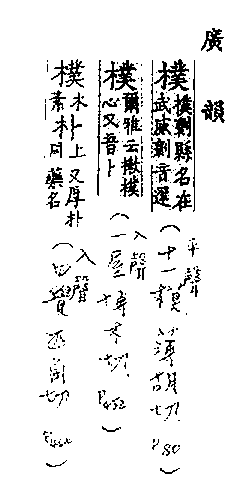 廣韻
樸 樸劋縣名在
武威劋音還
(平聲十一模薄胡切 P80)
樸 爾雅云樕樸
心又音卜
(入聲一屋博木切 P452)
樸 木素
上同又厚朴藥名
(入聲四覺匹角切)